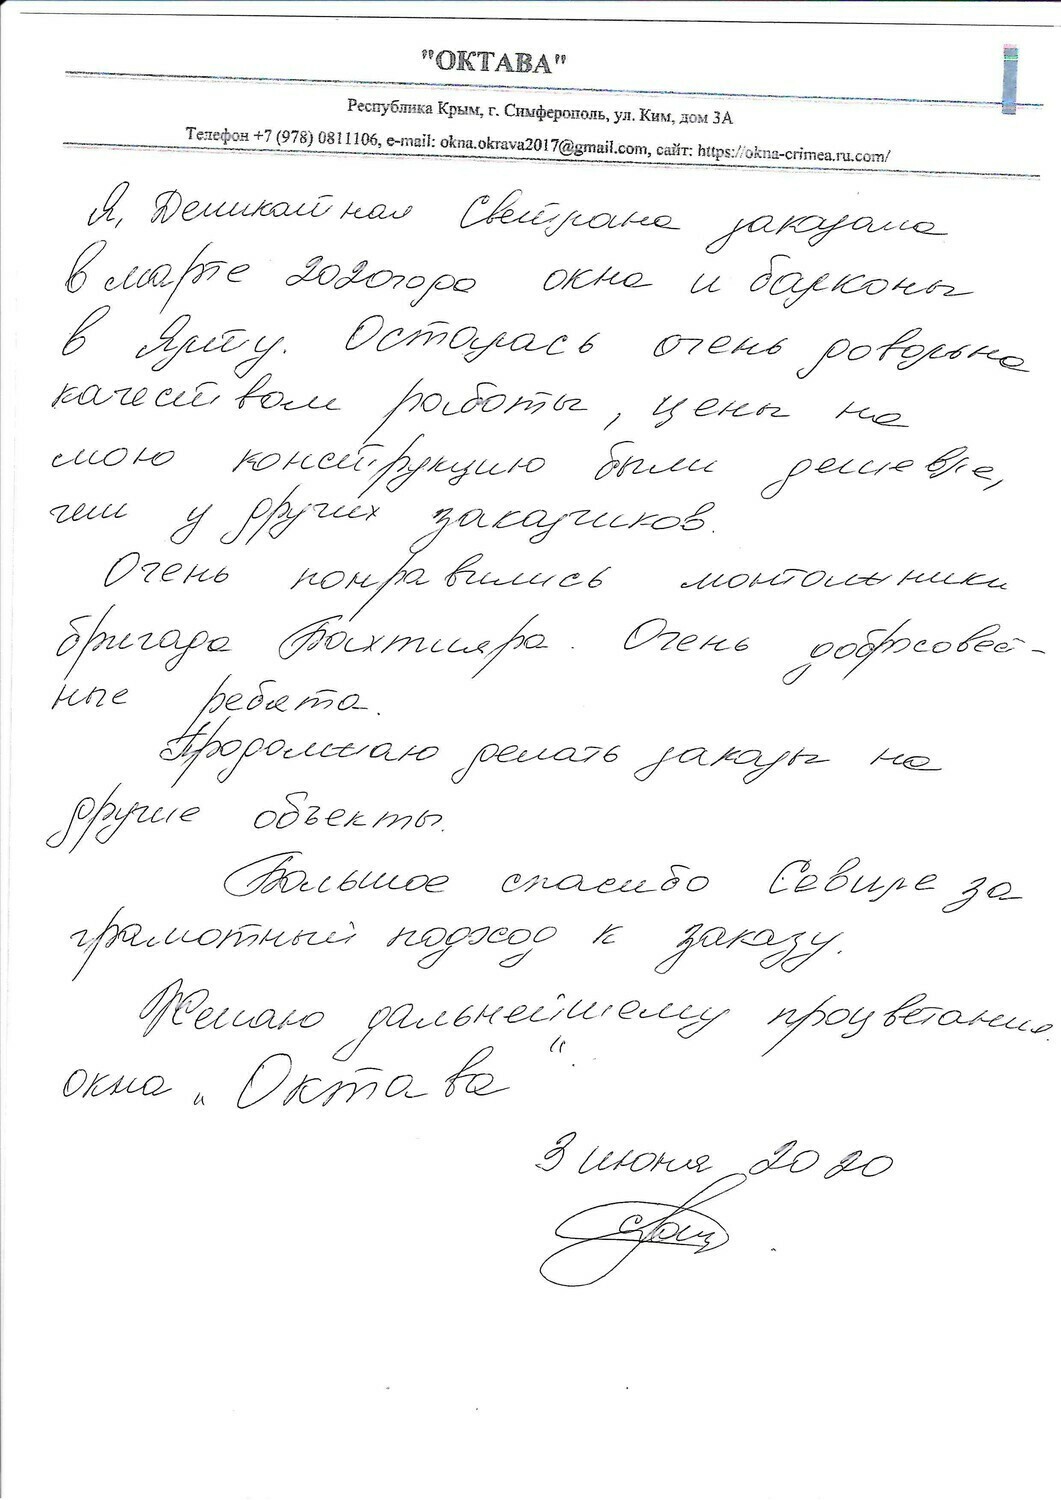 "ОКТАВА"
Республика Крым, г. Симферополь, ул. Ким, дом 3А
Телефон +7 (978) 0811106, e-mail: okna.okrava2017@gmail.com, сайт: https://okna-crimea.ru.com/
Я, Деликатная Светлана заказала
в марте 2020года окна и балконы
в Ялту. Осталась очень довольна
качеством работы, цены на
мою конструкцию были дешевле,
чем у других заказчиков.
Очень понравились монтажники
бригада Бахтияра. Очень добросовест-
ные ребята.
Продолжаю делать заказы на
другие объекты.
Большое спасибо Севиле за
грамотный подход к заказу.
Желаю дальнейшему процветания
окна „Октава“.
3 июня 2020